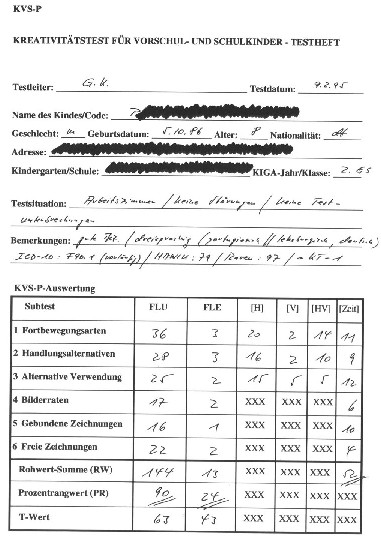 KVS-P
KREATIVITÄTSTEST FÜR VORSCHUL- UND SCHULKINDER - TESTHEFT
Testleiter: G.K. Testdatum: 9.2.95
Name des Kindes/Code:
Geschlecht: m Geburtsdatum: 5.10.86 Alter: 8 Nationalität:
Adresse:
Kindergarten/Schule: KIGA-Jahr/Klasse: 2. GS
Testsituation: Arbeitszimmer / keine Störungen / keine Test-
unterbrechungen
Bemerkungen: gute / dreisprachig (portugiesisch / luxemburgisch, deutsch)
ICD-10: F90.1 (vorläufig) / HAWIK: 79 / Raven: 97 /
KVS-P-Auswertung
Subtest FLU FLE [H] [V] [HV] [Zeit]
1 Fortbewegungsarten 36 3 20 2 14 11
2 Handlungsalternativen 28 3 16 2 10 9
3 Alternative Verwendung 25 2 15 5 5 12
4 Bilderraten 17 2 XXX XXX XXX 6
5 Gebundene Zeichnungen 16 1 XXX XXX XXX 10
6 Freie Zeichnungen 22 2 XXX XXX XXX 4
Rohwert-Summe (RW) 144 13 XXX XXX XXX 52
Prozentrangwert (PR) 90 24 XXX XXX XXX XXX
T-Wert 63 43 XXX XXX XXX XXX